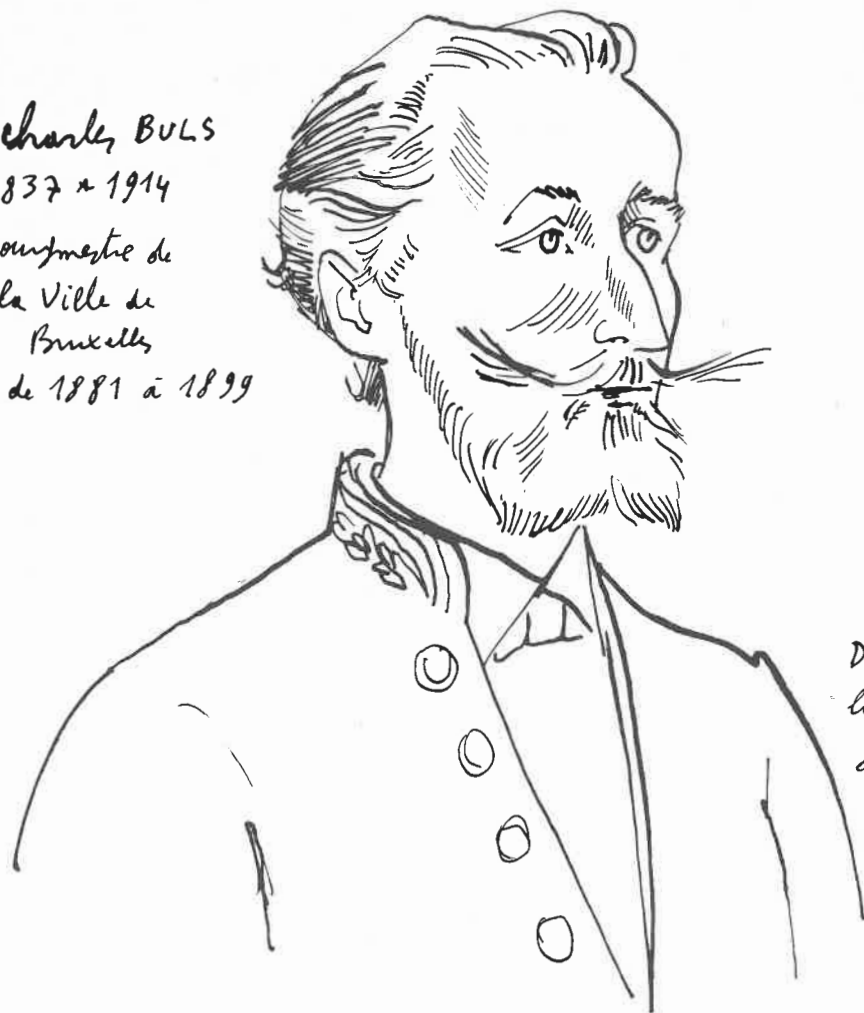 Charles BULS
837 * 1914
ourgmestre de
la Ville de
Bruxelles
de 1881 à 1899
D
l